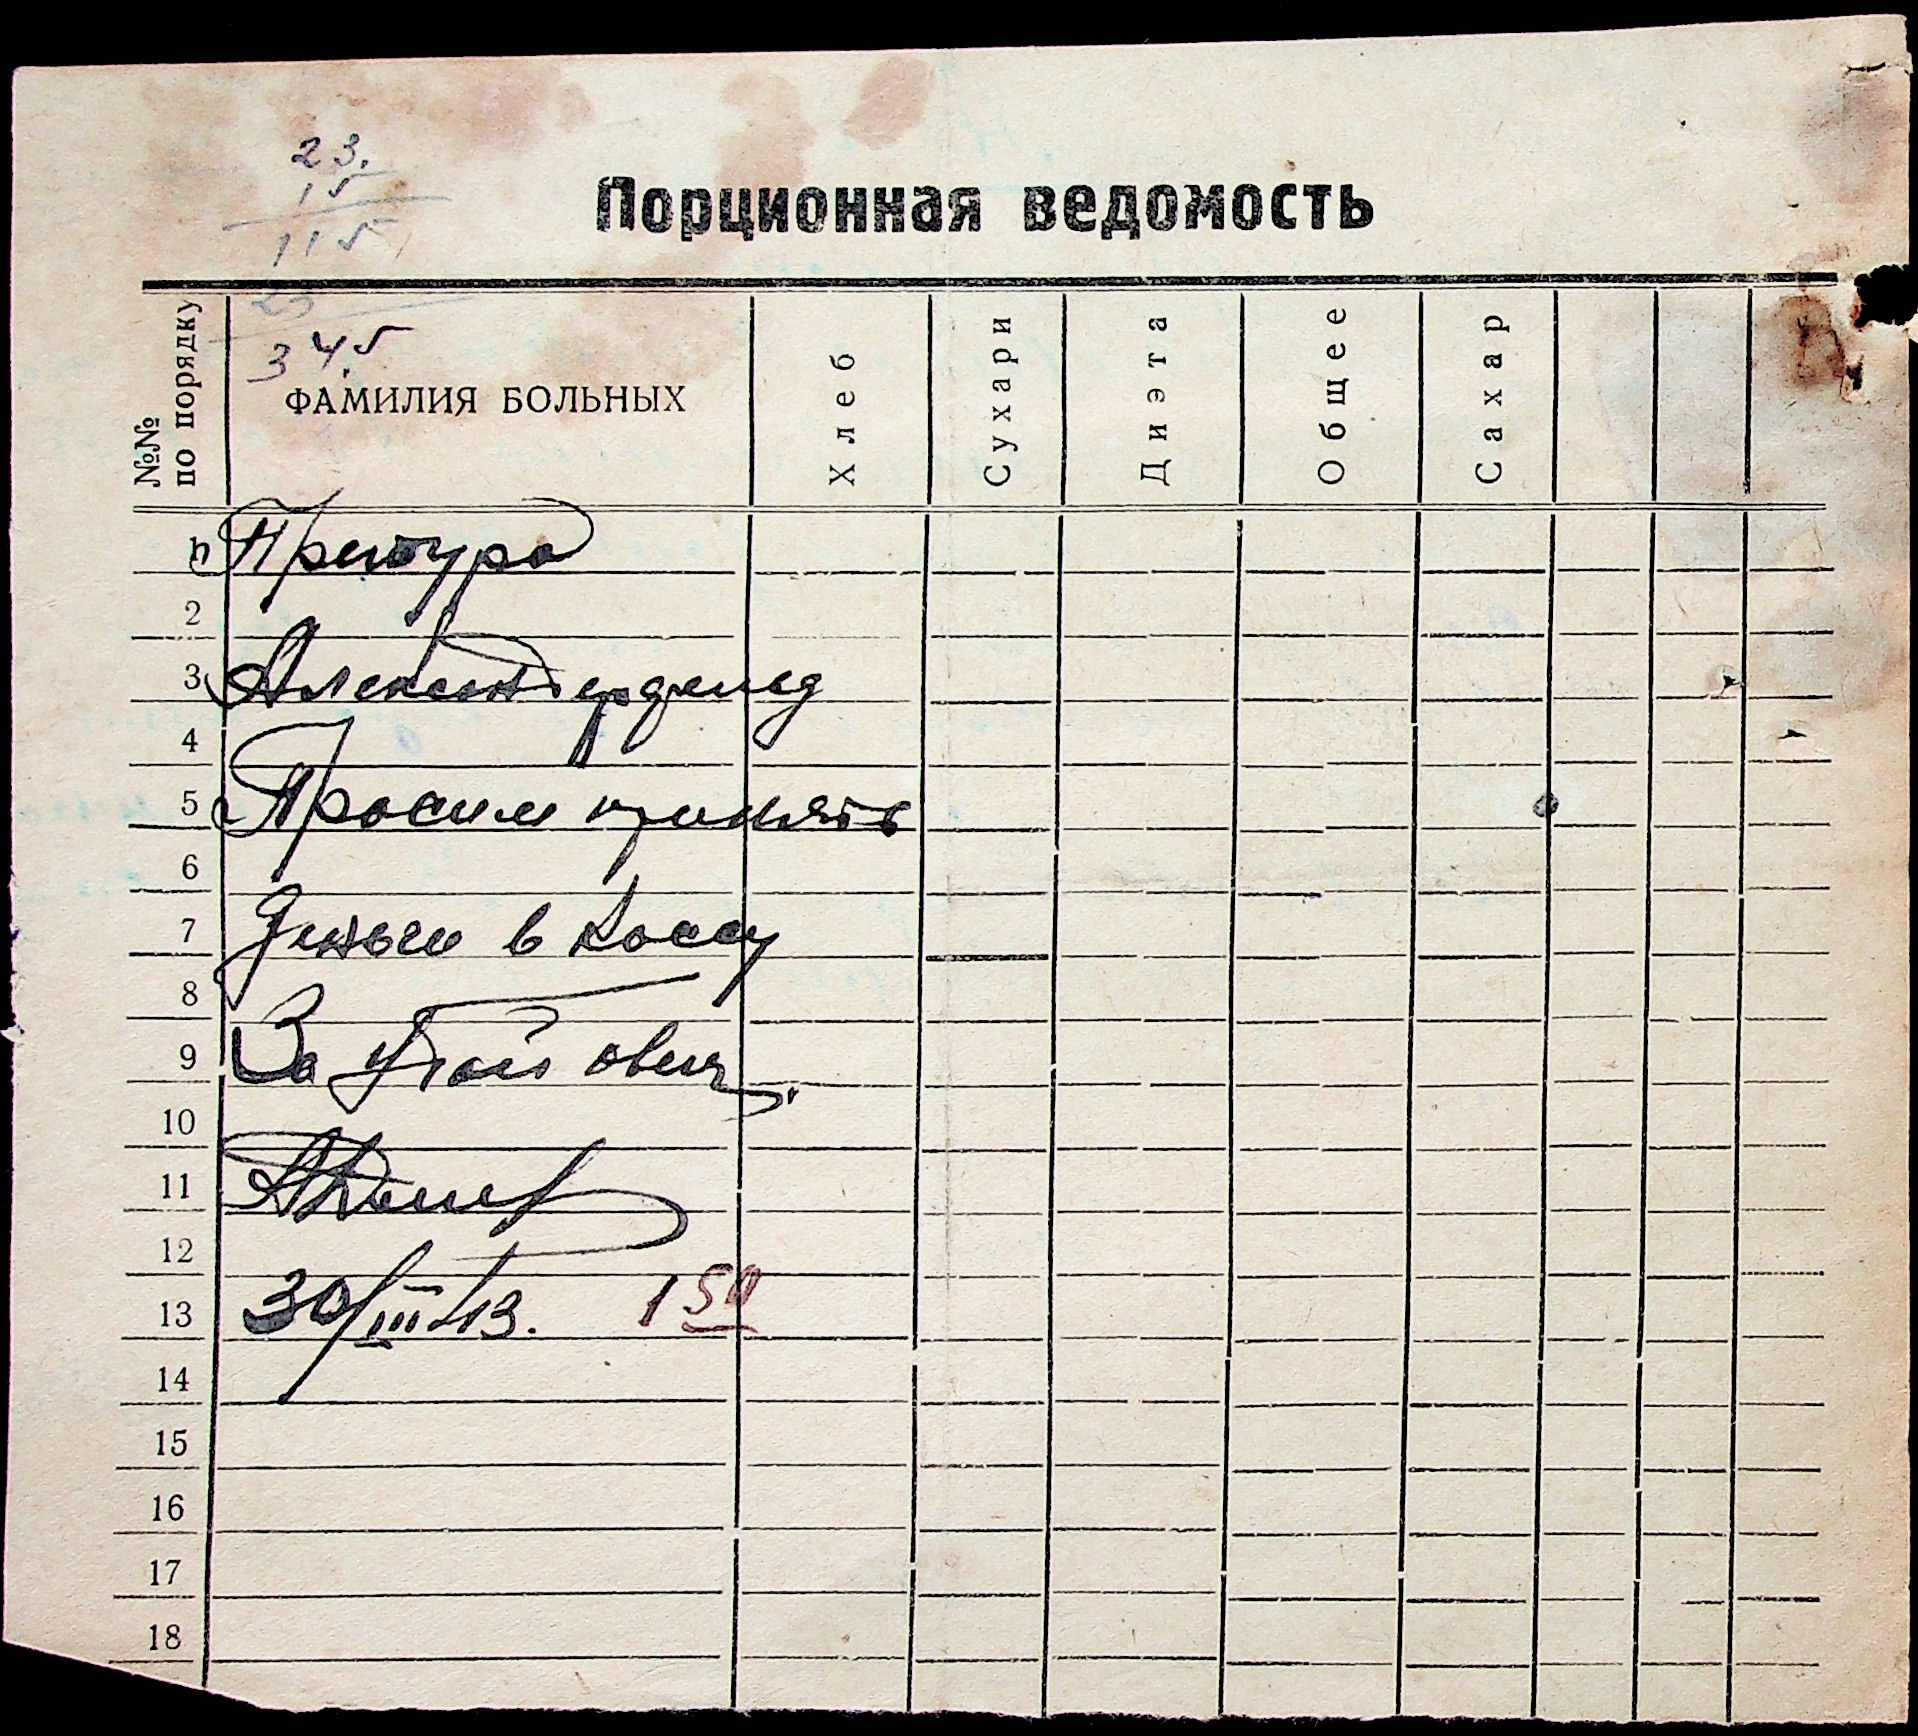 23.
15
115
23
345
Порционная ведомость
№№ по порядку
ФАМИЛИЯ БОЛЬНЫХ
Хлеб
Сухари
Диэта
Общее
Сахар
1
Претура
2
3 Александерфельд
4
5 Просим принять
6
7 Деньги в кассу
8
9 За убой овец.
10
11
12
13 30/III 43. 1 50
14
15
16
17
18